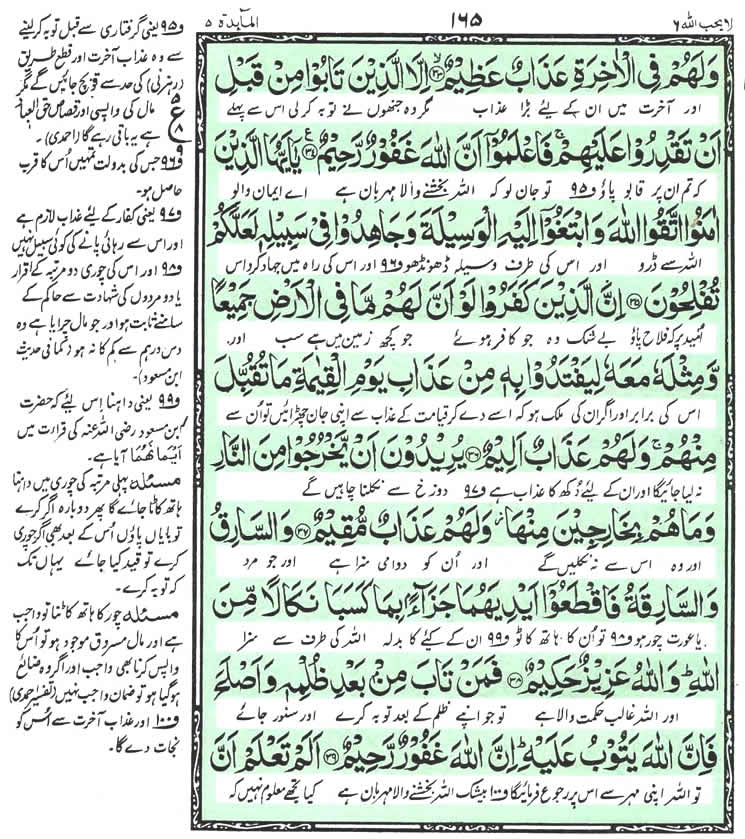 لا یحب اللہ ۶
۱۶۵
المآىدة ۵
وَلَهُمْ فِي الْاٰخِرَةِ عَذَابٌ عَظِيْمٌ ۳۳ اِلَّا الَّذِيْنَ تَابُوْا مِنْ قَبْلِ
اور آخرت میں ان کے لیئے بڑا عذاب گروہ جنھوں نے توبہ کرلی اس سے پہلے
اَنْ تَقْدِرُوْا عَلَيْهِمْ ۚ فَاعْلَمُوْۤا اَنَّ اللّٰهَ غَفُوْرٌ رَّحِيْمٌ ۳۴ يٰۤاَيُّهَا الَّذِيْنَ
کہ تم ان پر قابو پاؤ و۹۵ تو جان لو کہ اللہ بخشنے والا مہربان ہے اے ایمان والو
اٰمَنُوا اتَّقُوا اللّٰهَ وَابْتَغُوْۤا اِلَيْهِ الْوَسِيْلَةَ وَجَاهِدُوْا فِيْ سَبِيْلِهٖ لَعَلَّكُمْ
اللہ سے ڈرو اور اس کی طرف وسیلہ ڈھونڈھو و۹۶ اور اس کی راہ میں جہاد کرو اس
تُفْلِحُوْنَ ۳۵ اِنَّ الَّذِيْنَ كَفَرُوْا لَوْ اَنَّ لَهُمْ مَّا فِي الْاَرْضِ جَمِيْعًا
امید پر کہ فلاح پاؤ بے شک وہ جو کافر ہوئے جو کچھ زمین میں ہے سب اور
وَّمِثْلَهٗ مَعَهٗ لِيَفْتَدُوْا بِهٖ مِنْ عَذَابِ يَوْمِ الْقِيٰمَةِ مَا تُقُبِّلَ
اس کی برابر اور اگر ان کی ملک ہو کہ اسے دے کر قیامت کے عذاب سے اپنی جان چھڑائیں تو ان سے
مِنْهُمْ ۚ وَلَهُمْ عَذَابٌ اَلِيْمٌ ۳۶ يُرِيْدُوْنَ اَنْ يَّخْرُجُوْا مِنَ النَّارِ
نہ لیا جائیگا اور ان کے لیئے دکھ کا عذاب ہے و۹۷ دوزخ سے نکلنا چاہیں گے
وَمَا هُمْ بِخَارِجِيْنَ مِنْهَا ۫ وَلَهُمْ عَذَابٌ مُّقِيْمٌ ۳۷ وَالسَّارِقُ
اور وہ اس سے نہ نکلیں گے اور ان کو دوامی سزا ہے اور جو مرد
وَالسَّارِقَةُ فَاقْطَعُوْۤا اَيْدِيَهُمَا جَزَآءًۢ بِمَا كَسَبَا نَكَالًا مِّنَ
یا عورت چور ہو و۹۸ تو ان کا ہاتھ کاٹو و۹۹ ان کے کیئے کا بدلہ اللہ کی طرف سے سزا
اللّٰهِ ؕ وَاللّٰهُ عَزِيْزٌ حَكِيْمٌ ۳۸ فَمَنْ تَابَ مِنْۢ بَعْدِ ظُلْمِهٖ وَاَصْلَحَ
اور اللہ غالب حکمت والا ہے تو جو اپنے ظلم کے بعد توبہ کرے اور سنور جائے
فَاِنَّ اللّٰهَ يَتُوْبُ عَلَيْهِ ؕ اِنَّ اللّٰهَ غَفُوْرٌ رَّحِيْمٌ ۳۹ اَلَمْ تَعْلَمْ اَنَّ
تو اللہ اپنی مہر سے اس پر رجوع فرمائیگا و۱۰۰ بیشک اللہ بخشنے والا مہربان ہے کیا تجھے معلوم نہیں کہ
و۹۵ یعنی گرفتاری سے قبل توبہ کرلینے
سے وہ عذاب آخرت اور قطع طریق
(رہزنی) کی حد سے تو بچ جائیں گے مگر
مال کی واپسی اور قصاص حق العباد
ہے یہ باقی رہے گا (احمدی) ۔
و۹۶ جس کی بدولت تمہیں اس کا قرب
حاصل ہو۔
و۹۷ یعنی کفار کے لئے عذاب لازم ہے
اور اس سے رہائی پانے کی کوئی سبیل نہیں
و۹۸ اور اس کی چوری دو مرتبہ کے اقرار
یا دو مردوں کی شہادت سے حاکم کے
سامنے ثابت ہو اور جو مال چرایا ہے وہ
دس درہم سے کم کا نہ ہو (کما فی حدیث
ابن مسعود)
و۹۹ یعنی داہنا اس لیئے کہ حضرت
ابن مسعود رضی اللہ عنہ کی قرارت میں
اَیْمَانَهُمَا آیا ہے۔
مسئلہ پہلی مرتبہ کی چوری میں داہنا
ہاتھ کاٹا جائے گا پھر دوبارہ اگر کرے
تو بایاں پاؤں اس کے بعد بھی اگر چوری
کرے تو قید کیا جائے یہاں تک
کہ توبہ کرے۔
مسئلہ چور کا ہاتھ کاٹنا تو واجب
ہے اور مال مسروق موجود ہو تو اس کا
واپس کرنا بھی واجب اور اگر وہ ضائع
ہوگیا ہو تو ضمان واجب نہیں (تفسیر احمدی)
و۱۰۰ اور عذاب آخرت سے اس کو
نجات دے گا۔